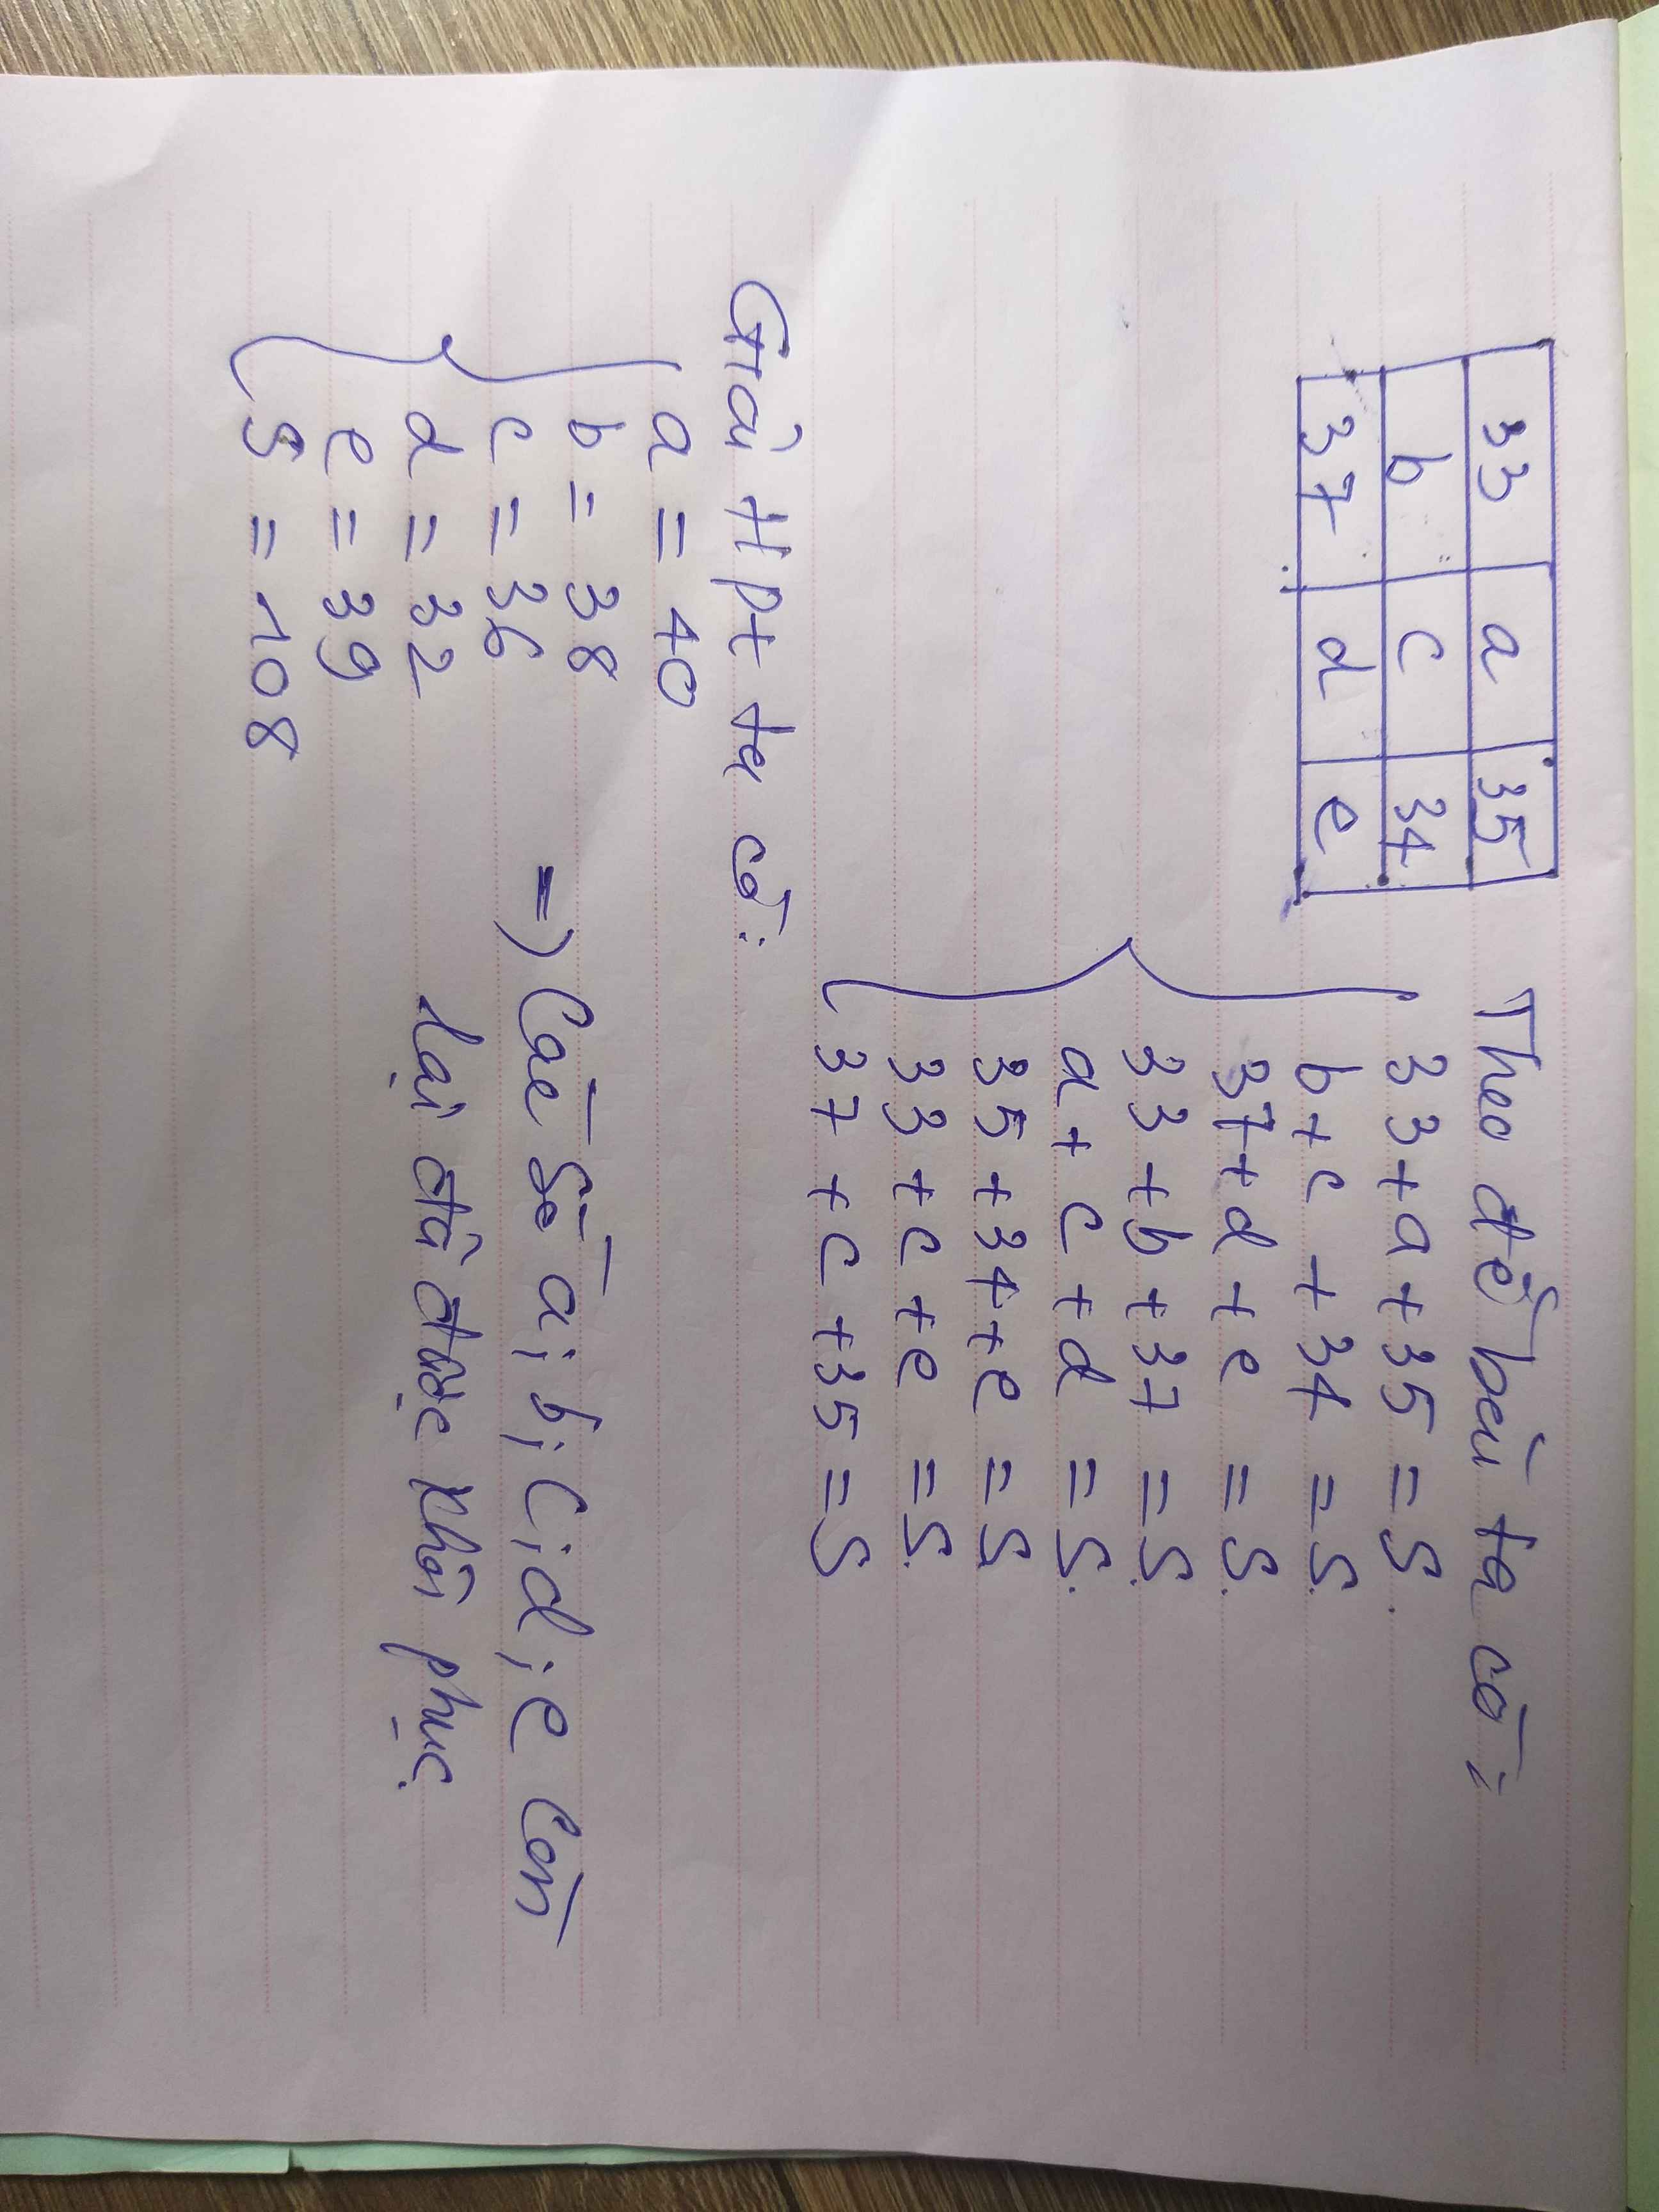 33 a 35
b c 34
37 d e
Theo đề bài ta có:
33 + a + 35 = S
b + c + 34 = S
37 + d + e = S
33 + b + 37 = S
a + c + d = S
35 + 34 + e = S
33 + c + e = S
37 + c + 35 = S
Giải Hpt ta có:
a = 40
b = 38
c = 36
d = 32
e = 39
S = 108
=) Các số a; b; c; d; e còn
lại đã được khôi phục.